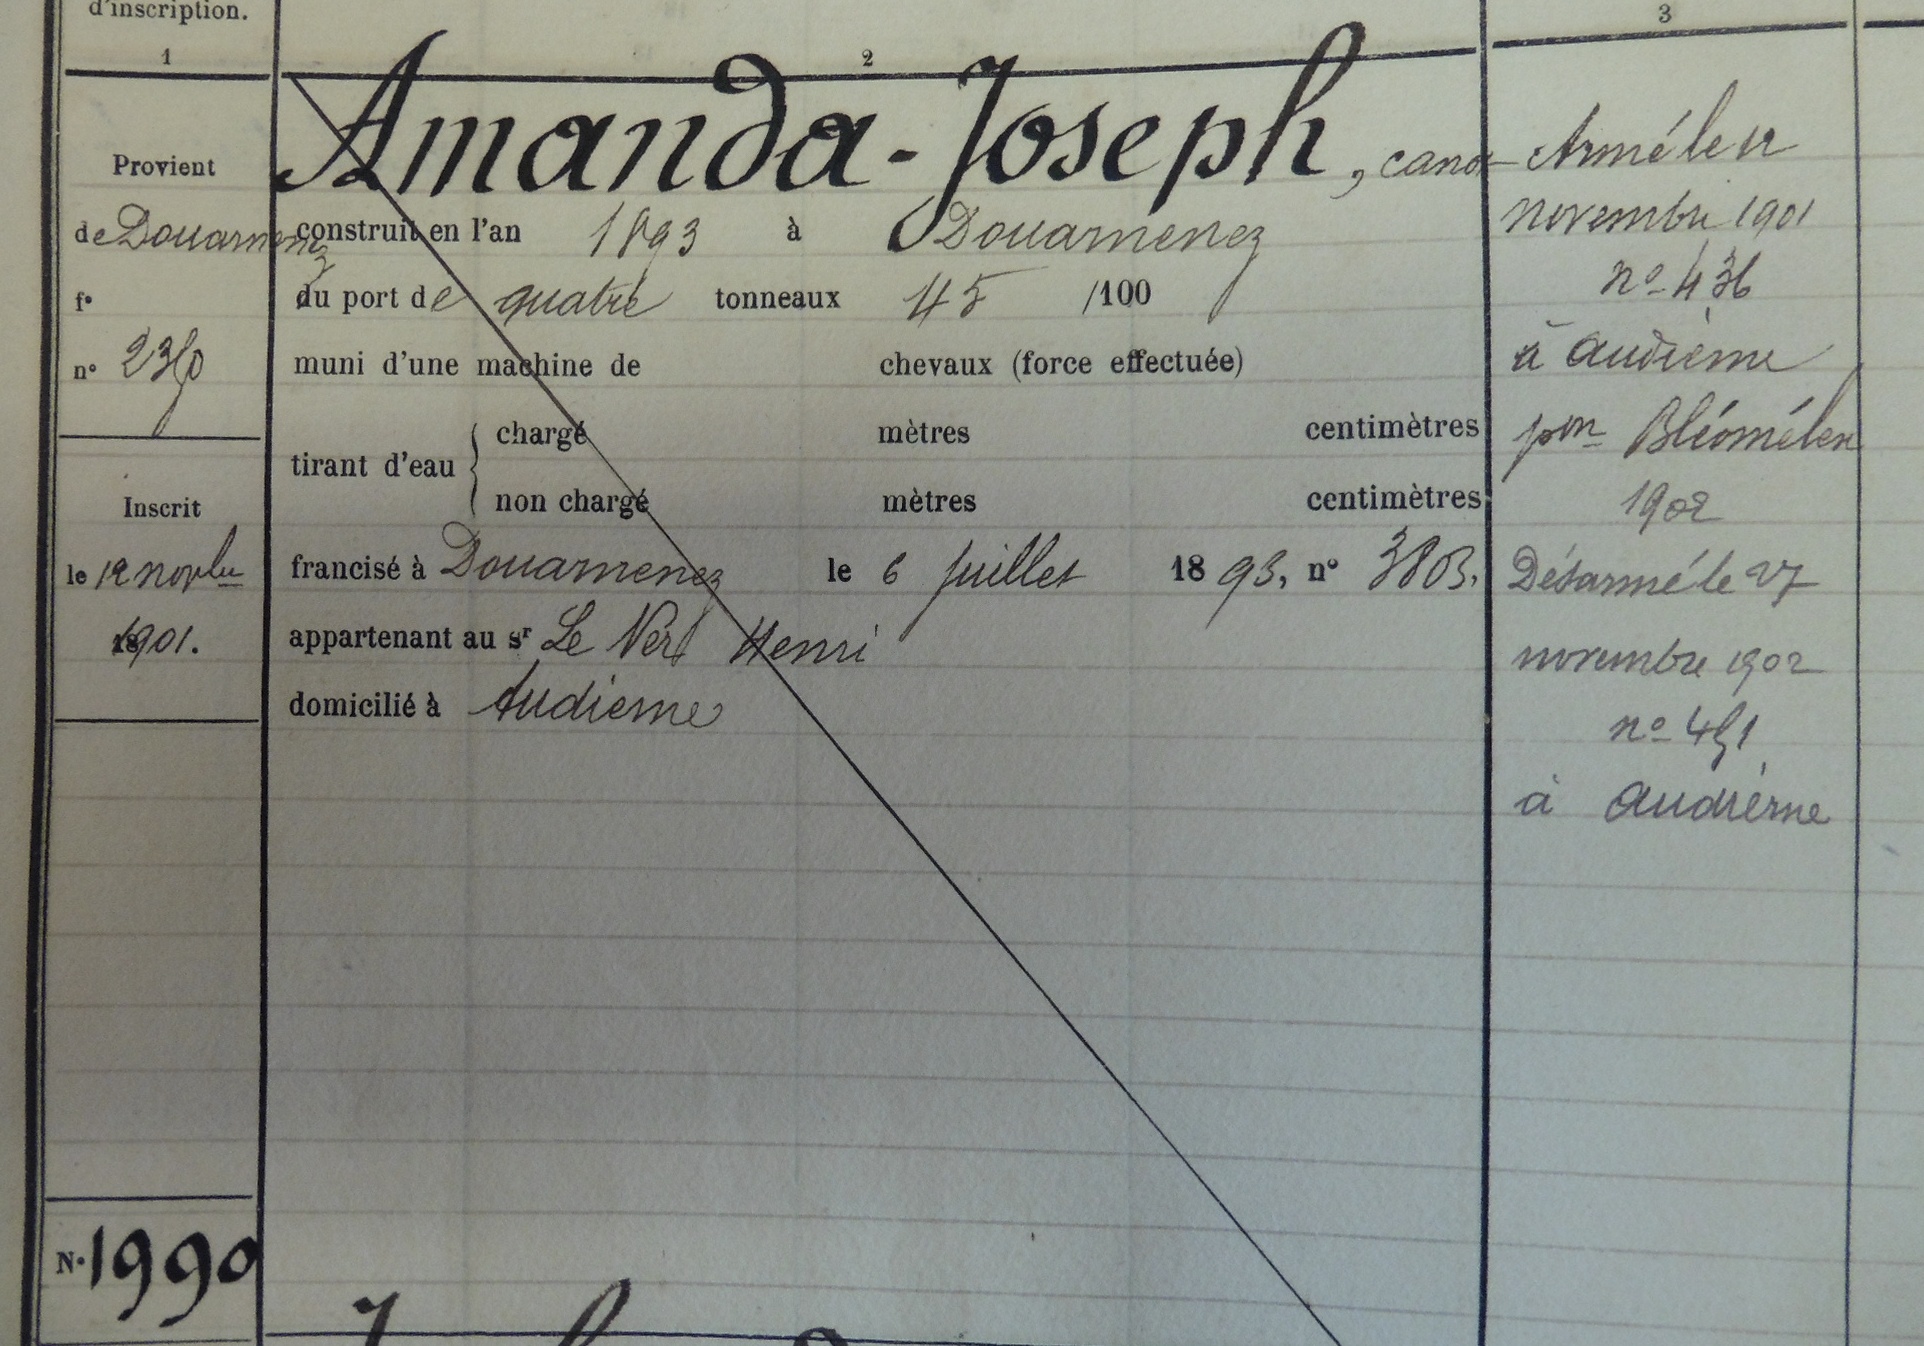 d'inscription.
1
2
3
Provient
de Douarnenez
f°
n°
Inscrit
le 12 novbre
1901.
N° 1990
Amanda-Joseph, canot
construit en l'an 1893 à Douarnenez
du port de quatre tonneaux 45 /100
muni d'une machine de chevaux (force effectuée)
tirant d'eau { chargé mètres centimètres
non chargé mètres centimètres
francisé à Douarnenez le 6 Juillet 1893, n° 3803,
appartenant au sr Le Vert Henri
domicilié à Audierne
Armé le 12
novembre 1901
n° 436
à Audierne
pon
1902
Désarmé le 27
novembre 1902
n° 451
à Audierne